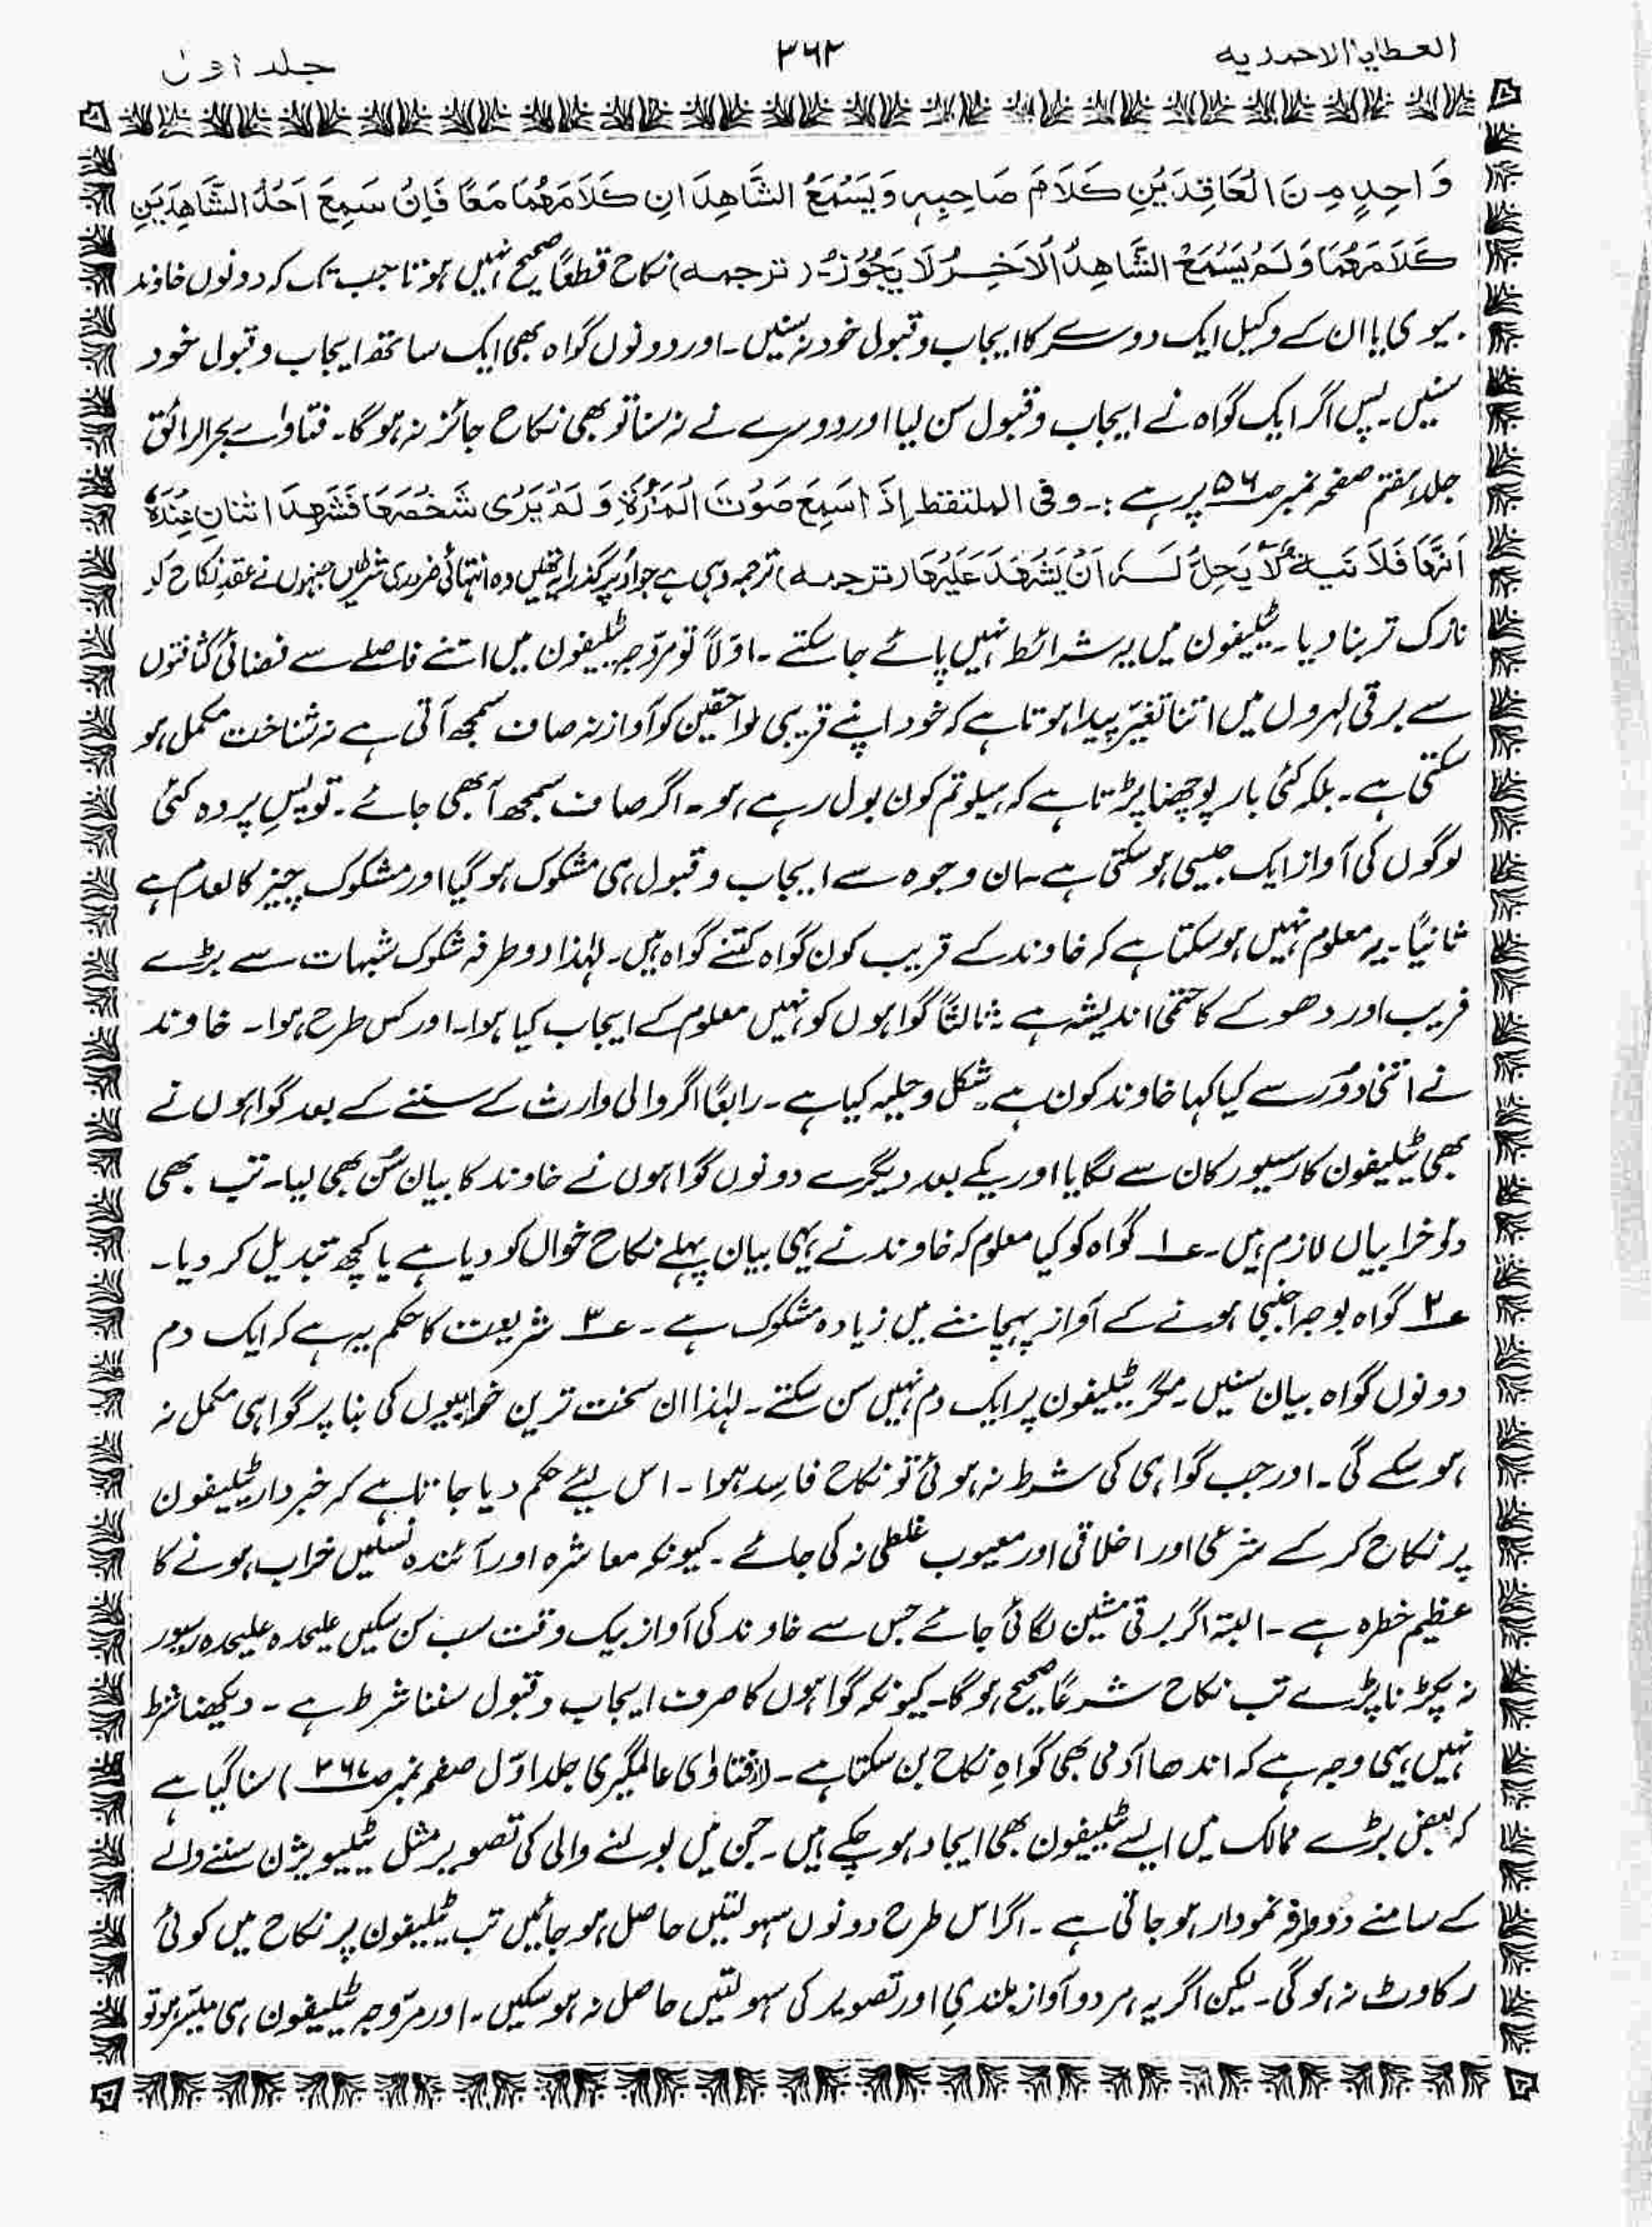 العطايا الاحمديه
۳۶۲
جلد اول
وَاحِدٍ مِنَ الْعَاقِدَيْنِ كَلَامَ صَاحِبِهٖ وَيَسْمَعُ الشَّاهِدَانِ كَلَامَهُمَا مَعًا فَاِنْ سَمِعَ اَحَدُ الشَّاهِدَيْنِ
كَلَامَهُمَا وَلَمْ يَسْمَعْ الشَّاهِدُ الْاٰخِرُ لَا يَجُوْزُ:۔ (ترجمہ) نکاح قطعًا صحیح نہیں ہوتا جب تک کہ دونوں خاوند
بیوی یا ان کے وکیل ایک دوسرے کا ایجاب وقبول خود نہ سنیں۔ اور دونوں گواہ بھی ایک ساتھ ایجاب وقبول خود
سنیں۔ پس اگر ایک گواہ نے ایجاب وقبول سن لیا اور دوسرے نے نہ سنا تو بھی نکاح جائز نہ ہوگا۔ فتاوٰے بحرالرائق
جلد ہفتم صفحہ نمبر ص۵۶ پر ہے:۔ وفی الملتقط اِذَا سَمِعَ صَوْتَ الْمَرْأَةِ وَلَمْ يَرٰى شَخْصَهَا فَشَهِدَ اثْنَانِ عِنْدَهٗ
اَنَّهَا فَلَانَيةٌ لَا يَحِلُّ لَهٗ اَنْ يَشْهَدَ عَلَيْهَا (ترجمہ) ترجمہ وہی ہے جو اُوپر گذرا یہ تھیں وہ انتہائی ضروری شرطیں جنہوں نے عقدِ نکاح کو
نازک تر بنا دیا۔ ٹیلیفون میں یہ شرائط نہیں پائے جا سکتے۔ اوّلاً تو مروّجہ ٹیلیفون میں اتنے فاصلے سے فضائی کثافتوں
سے برقی لہروں میں اتنا تغیّر پیدا ہوتا ہے کہ خود اپنے قریبی لواحقین کو آواز نہ صاف سمجھ آتی ہے نہ شناخت مکمل ہو
سکتی ہے۔ بلکہ کئی بار پوچھنا پڑتا ہے کہ ہیلو تم کون بول رہے ہو۔ اگر صاف سمجھ آ بھی جائے۔ تو پسِ پردہ کئی
لوگوں کی آواز ایک جیسی ہو سکتی ہے۔ ان وجوہ سے ایجاب وقبول ہی مشکوک ہوگیا اور مشکوک چیز کالعدم ہے
ثانیًا۔ یہ معلوم نہیں ہو سکتا ہے کہ خاوند کے قریب کون گواہ کتنے گواہ ہیں۔ لہٰذا دوطرفہ شکوک شبہات سے بڑے
فریب اور دھوکے کا حتمی اندیشہ ہے۔ ثالثًا گواہوں کو نہیں معلوم کے ایجاب کیا ہوا۔ اور کس طرح ہوا۔ خاوند
نے اتنی دُور سے کیا کہا خاوند کون ہے۔ شکل وحلیہ کیا ہے۔ رابعًا اگر والی وارث کے سننے کے بعد گواہوں نے
بھی ٹیلیفون کا رسیور کان سے لگایا اور یکے بعد دیگرے دونوں گواہوں نے خاوند کا بیان سُن بھی لیا۔ تب بھی
دوٗ خرابیاں لازم ہیں۔ ۱؎ گواہ کو کیا معلوم کہ خاوند نے یہی بیان پہلے نکاح خواں کو دیا ہے یا کچھ تبدیل کر دیا۔
۲؎ گواہ بوجہ اجنبی ہونے کے آواز پہچاننے میں زیادہ مشکوک ہے۔ ۳؎ شریعت کا حکم یہ ہے کہ ایک دم
دونوں گواہ بیان سنیں۔ مگر ٹیلیفون پر ایک دم نہیں سن سکتے۔ لہٰذا ان سخت ترین خرابیوں کی بنا پر گواہی مکمل نہ
ہو سکے گی۔ اور جب گواہی کی شرط نہ ہوئی تو نکاح فاسِد ہوا۔ اس لیئے حکم دیا جاتا ہے کہ خبردار ٹیلیفون
پر نکاح کر کے شرعی اور اخلاقی اور معیوب غلطی نہ کی جائے۔ کیونکہ معاشرہ اور آئندہ نسلیں خراب ہونے کا
عظیم خطرہ ہے۔ البتہ اگر برقی مشین لگائی جائے جس سے خاوند کی آواز بیک وقت سب سن سکیں علیحدہ علیحدہ رسیور
نہ پکڑنا پڑے تب نکاح شرعًا صحیح ہوگا۔ کیونکہ گواہوں کا صرف ایجاب وقبول سننا شرط ہے۔ دیکھنا شرط
نہیں یہی وجہ ہے کہ اندھا آدمی بھی گواہِ نکاح بن سکتا ہے۔ (از فتاوٰی عالمگیری جلد اوّل صفحہ نمبر ص۲۶۷) سنا گیا ہے
کہ بعض بڑے ممالک میں ایسے ٹیلیفون بھی ایجاد ہو چکے ہیں۔ جن میں بولنے والی کی تصویر مثل ٹیلیویژن سننے والے
کے سامنے دوطرفہ نمودار ہو جاتی ہے۔ اگر اس طرح دونوں سہولتیں حاصل ہو جائیں تب ٹیلیفون پر نکاح میں کوئی
رکاوٹ نہ ہو گی۔ لیکن اگر یہ ہر دو آواز بلندیِ اور تصویر کی سہولتیں حاصل نہ ہو سکیں۔ اور مروّجہ ٹیلیفون ہی میسّر ہو تو